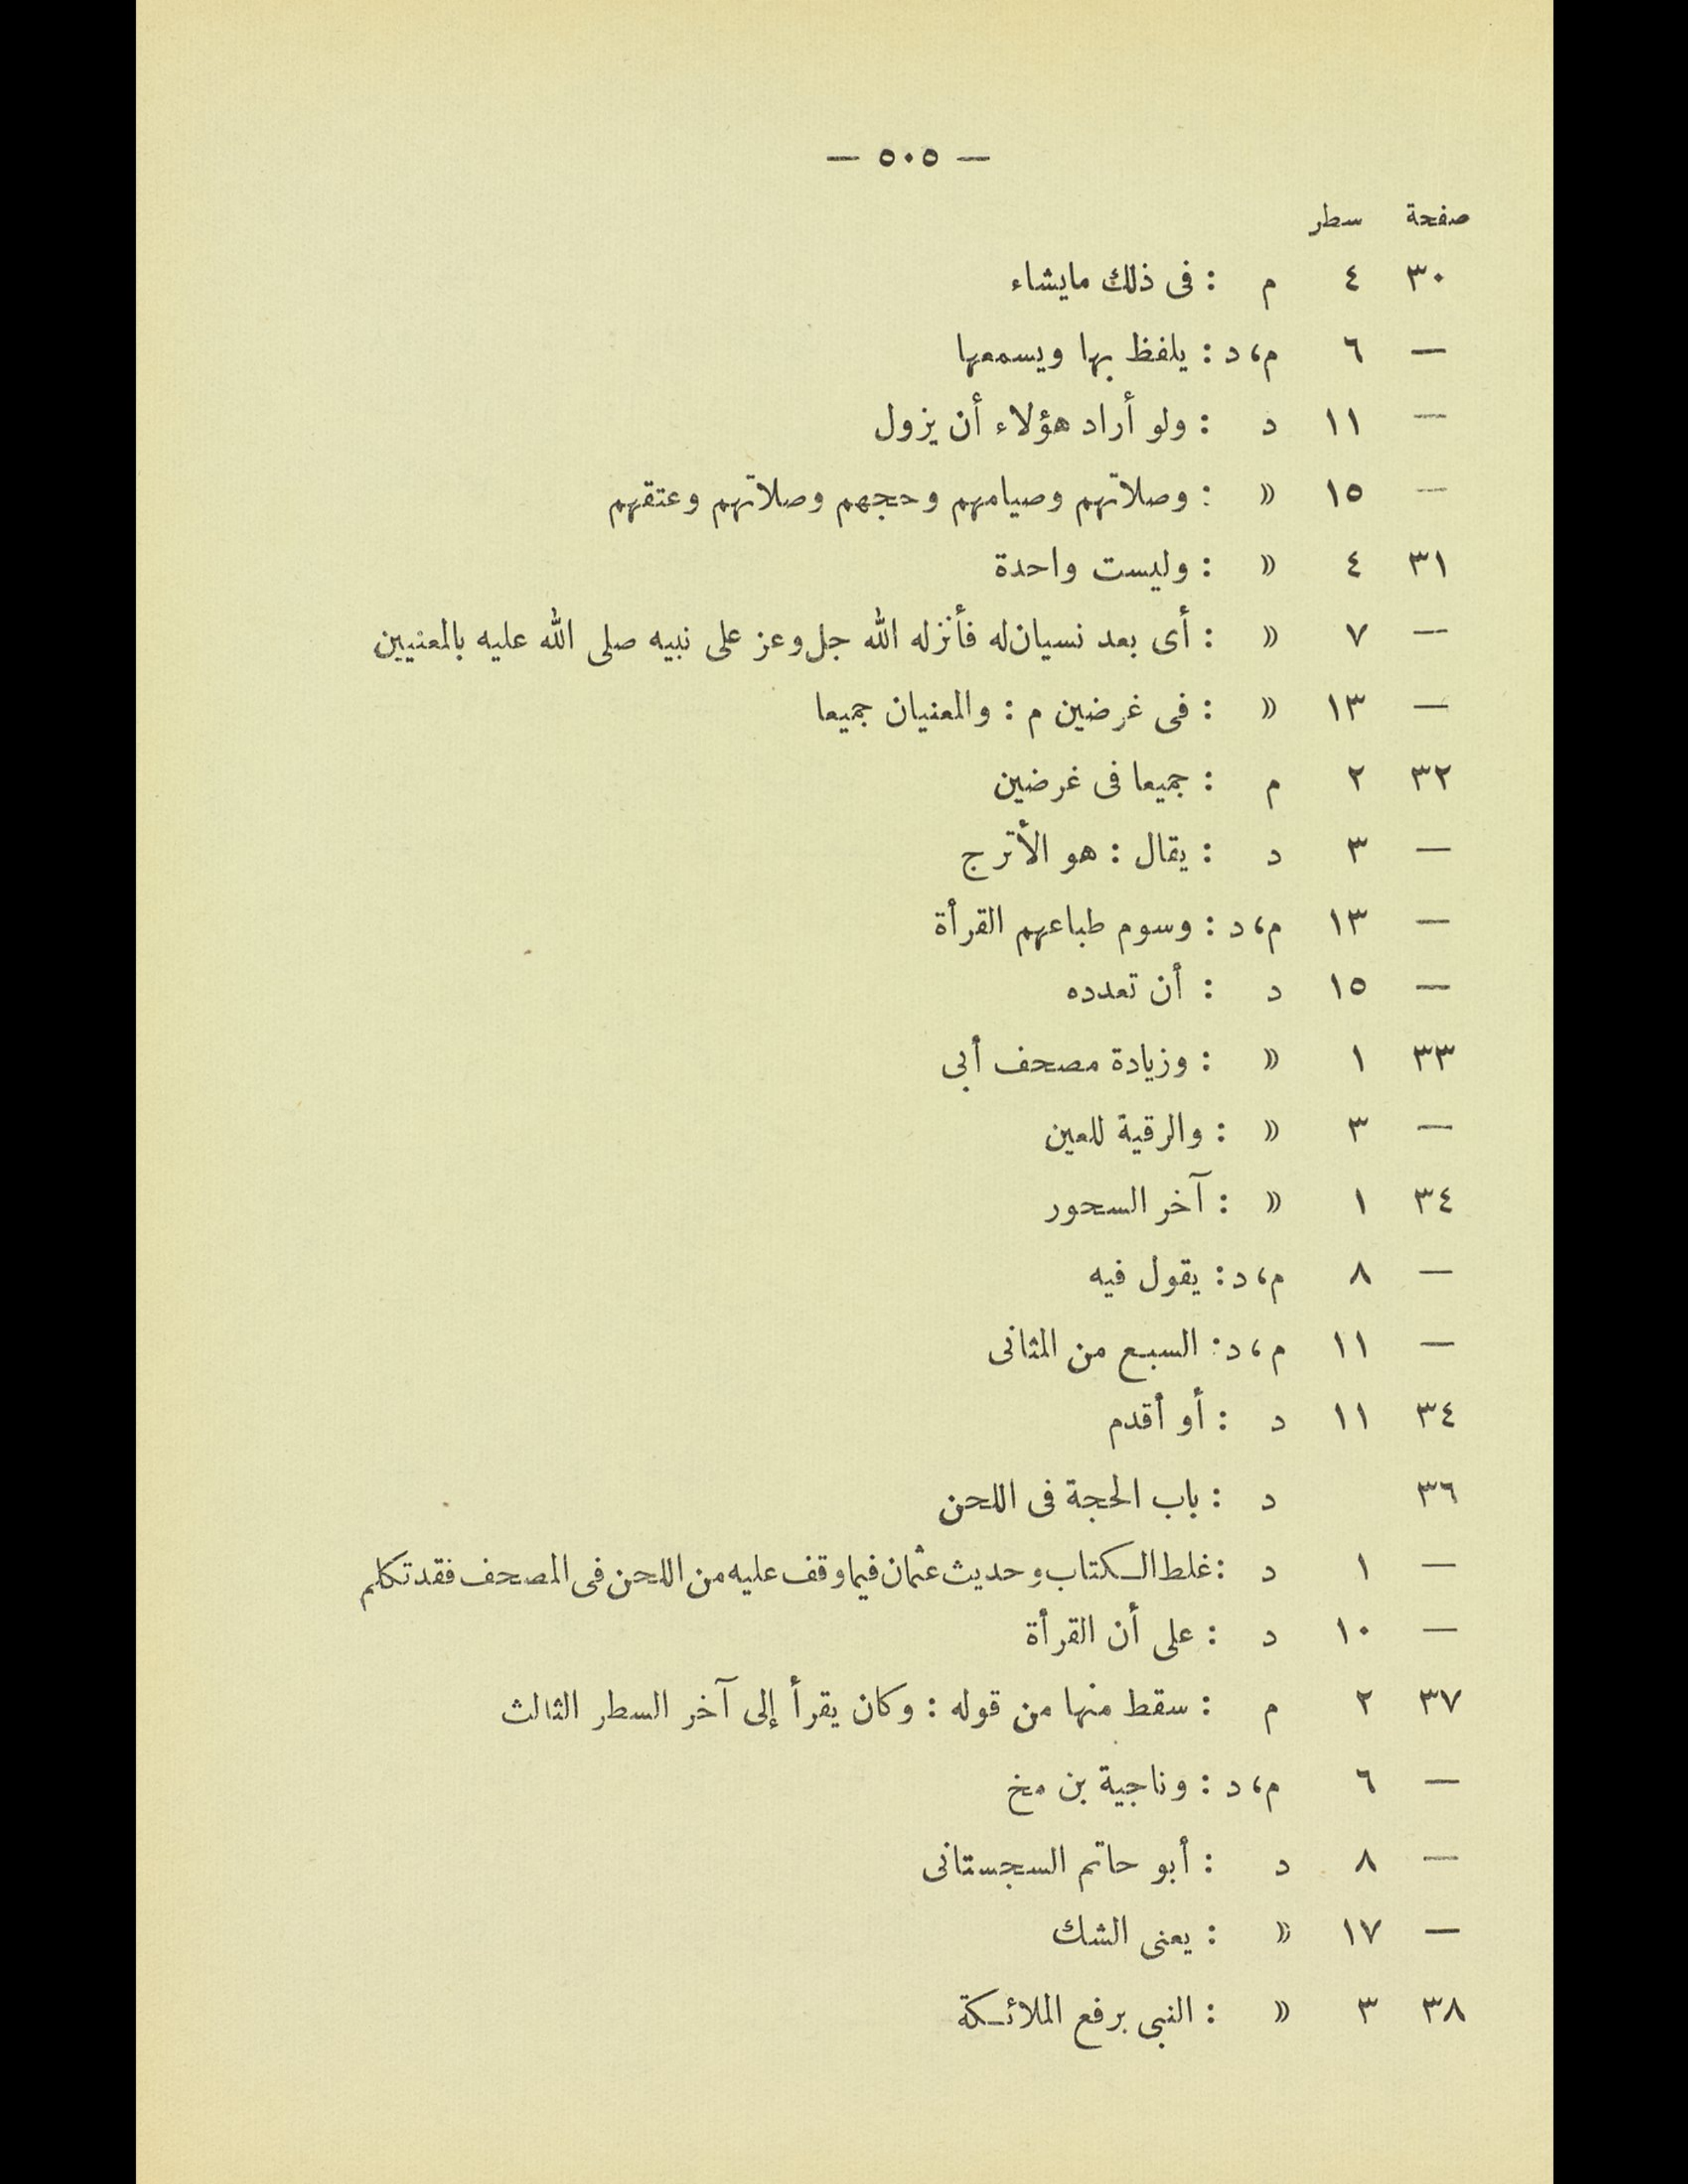 — ٥٠٥ —
صفحة سطر
٣٠ ٤ م : فى ذلك مايشاء
— ٦ م، د : يلفظ بها ويسمعها
— ١١ د : ولو أراد هؤلاء أن يزول
— ١٥ » : وصلاتهم وصيامهم وحجهم وصلاتهم وعتقهم
٣١ ٤ » : وليست واحدة
— ٧ » : أى بعد نسيان له فأنزله الله جل وعز على نبيه صلى الله عليه بالمعنيين
— ١٣ » : فى غرضين م : والمعنيان جميعا
٣٢ ٢ م : جميعا فى غرضين
— ٣ د : يقال : هو الأترج
— ١٣ م، د : وسوم طباعهم القرأة
— ١٥ د : أن تعدده
٣٣ ١ » : وزيادة مصحف أبى
— ٣ » : والرقية للعين
٣٤ ١ » : آخر السحور
— ٨ م، د : يقول فيه
— ١١ م، د : السبع من المثانى
٣٤ ١١ د : أو أقدم
٣٦ د : باب الحجة فى اللحن
— ١ د : غلط الكتاب وحديث عثمان فيما وقف عليه من اللحن فى المصحف فقد تكلم
— ١٠ د : على أن القرأة
٣٧ ٢ م : سقط منها من قوله : وكان يقرأ إلى آخر السطر الثالث
— ٦ م، د : وناجية بن مخ
— ٨ د : أبو حاتم السجستانى
— ١٧ » : يعنى الشك
٣٨ ٣ » : النبى برفع الملائكة